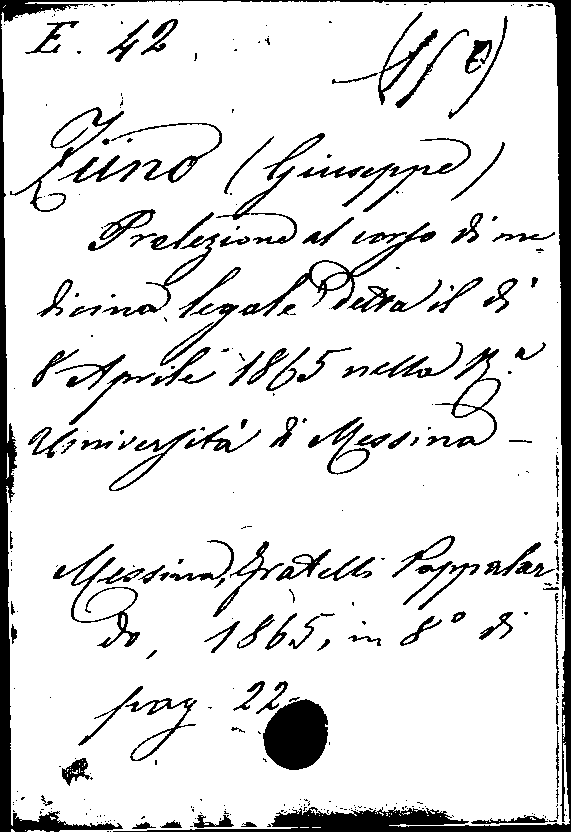 E. 42
(15 e)
Ziino (Giuseppe)
Prelezione al corso di me-
dicina legale detta il dì
8 Aprile 1865 nella R.a
Università di Messina –
Messina, Fratelli Pappalar
do, 1865, in 8° di
pag. 22